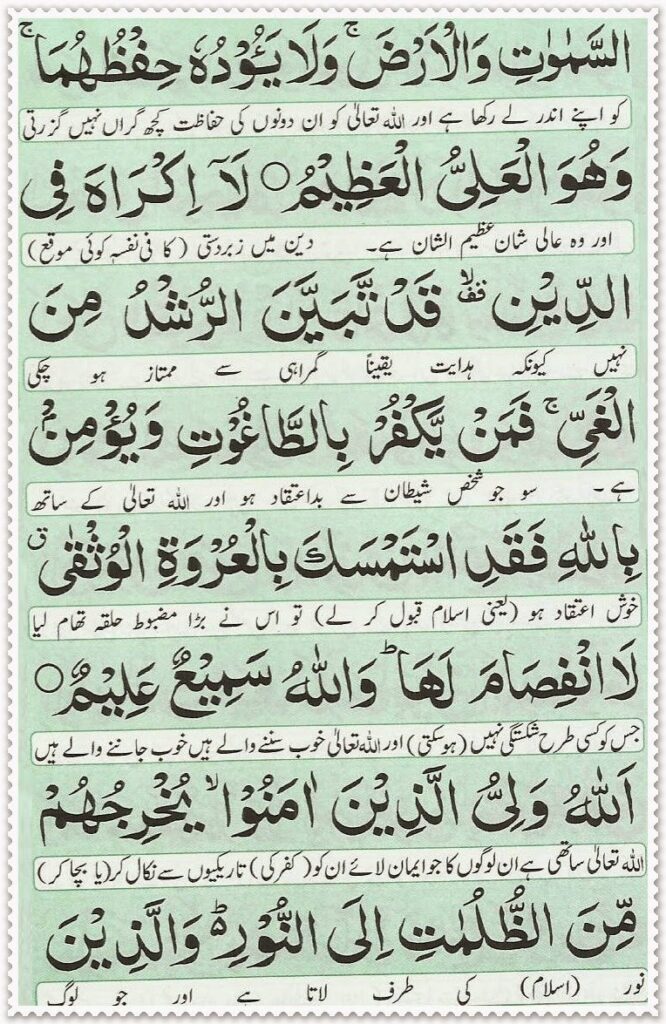 السَّمٰوٰتِ وَالْاَرْضَ ۚ وَلَا يَـُٔوْدُهٗ حِفْظُهُمَا ۚ
کو اپنے اندر لے رکھا ہے اور اللہ تعالیٰ کو ان دونوں کی حفاظت کچھ گراں نہیں گزرتی
وَهُوَ الْعَلِىُّ الْعَظِيْمُ ○ لَاۤ اِكْرَاهَ فِى
اور وہ عالی شان عظیم الشان ہے۔ دین میں زبردستی (کا فی نفسہٖ کوئی موقع)
الدِّيْنِ ۙقف قَدْ تَّبَيَّنَ الرُّشْدُ مِنَ
نہیں کیونکہ ہدایت یقیناً گمراہی سے ممتاز ہو چکی
الْغَىِّ ۚ فَمَنْ يَّكْفُرْ بِالطَّاغُوْتِ وَيُؤْمِنْۢ
ہے۔ سو جو شخص شیطان سے بداعتقاد ہو اور اللہ تعالیٰ کے ساتھ
بِاللّٰهِ فَقَدِ اسْتَمْسَكَ بِالْعُرْوَةِ الْوُثْقٰى ق
خوش اعتقاد ہو (یعنی اسلام قبول کر لے) تو اس نے بڑا مضبوط حلقہ تھام لیا
لَا انْفِصَامَ لَهَا ؕ وَاللّٰهُ سَمِيْعٌ عَلِيْمٌ ○
جس کو کسی طرح شکستگی نہیں (ہو سکتی) اور اللہ تعالیٰ خوب سننے والے ہیں خوب جاننے والے ہیں
اَللّٰهُ وَلِىُّ الَّذِيْنَ اٰمَنُوْا ۙ يُخْرِجُهُمْ
اللہ تعالیٰ ساتھی ہے ان لوگوں کا جو ایمان لائے ان کو (کفر کی) تاریکیوں سے نکال کر (یا بچا کر)
مِّنَ الظُّلُمٰتِ اِلَى النُّوْرِ ؕ وَالَّذِيْنَ
نور (اسلام) کی طرف لاتا ہے اور جو لوگ